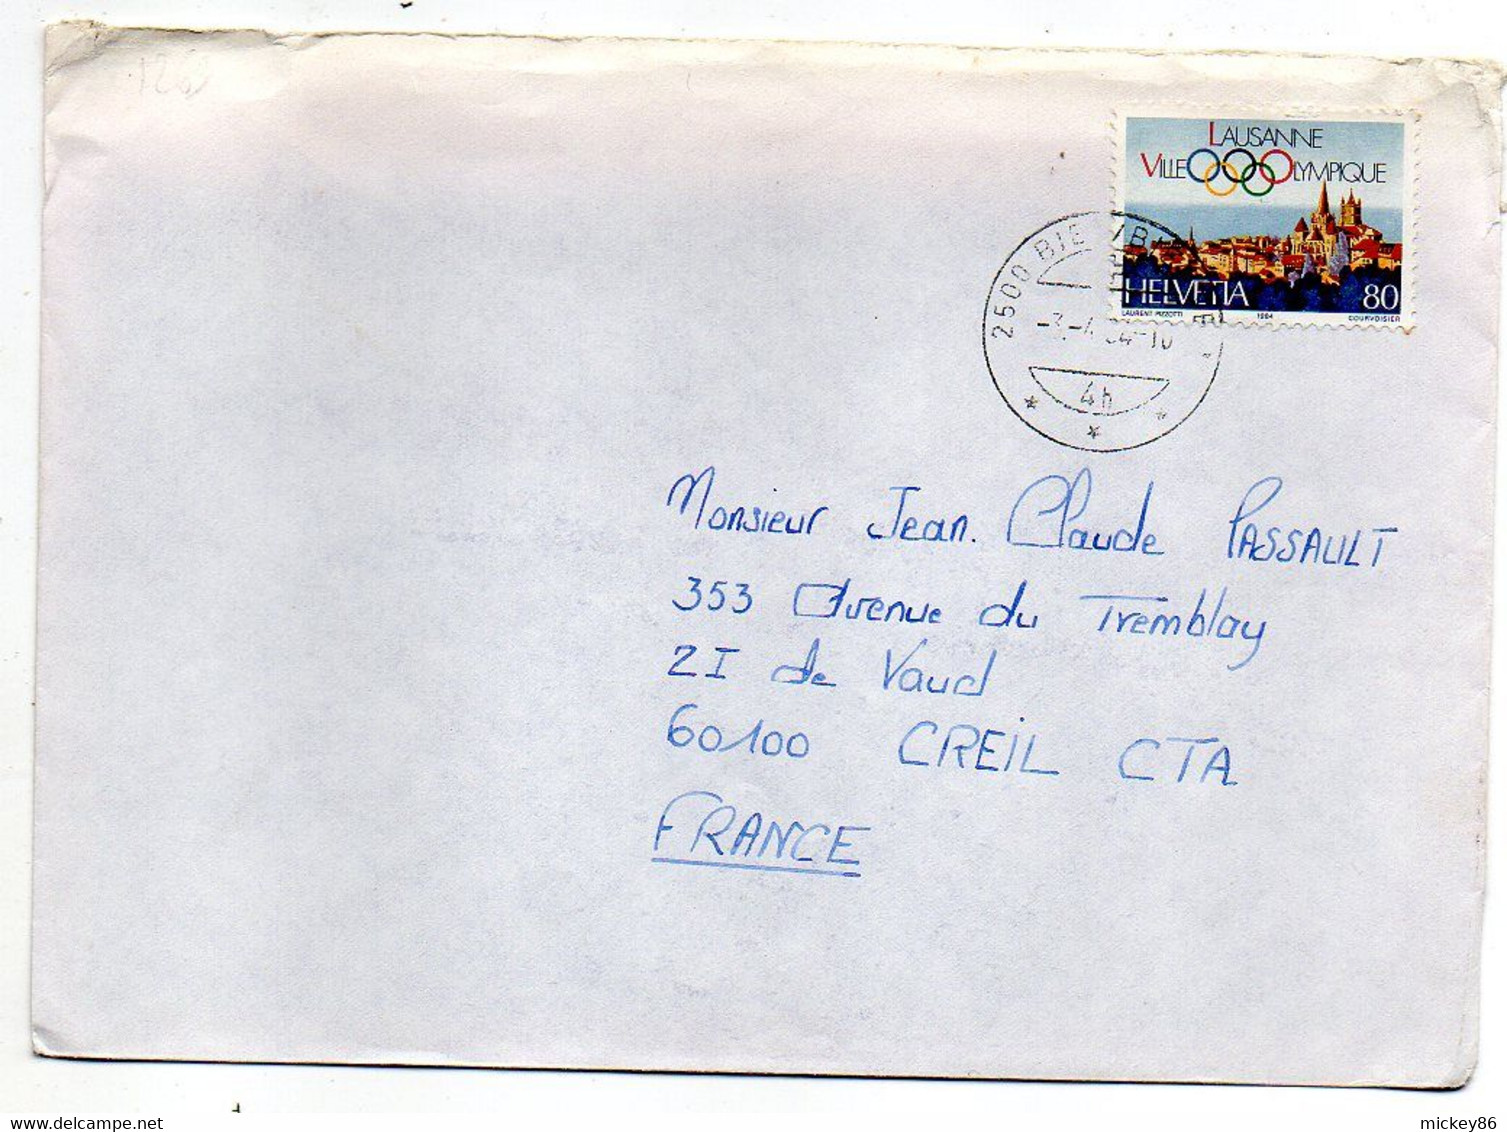 126
LAUSANNE
VILLE OLYMPIQUE
HELVETIA 80
LAURENT PIZZOTTI 1984 COURVOISIER
2500 BIE
-3.-4.84-10
4h
Monsieur Jean.Claude PASSAULT
353 Avenue du Tremblay
ZI de Vaud
60100 CREIL CTA
FRANCE
delcampe.net
mickey86